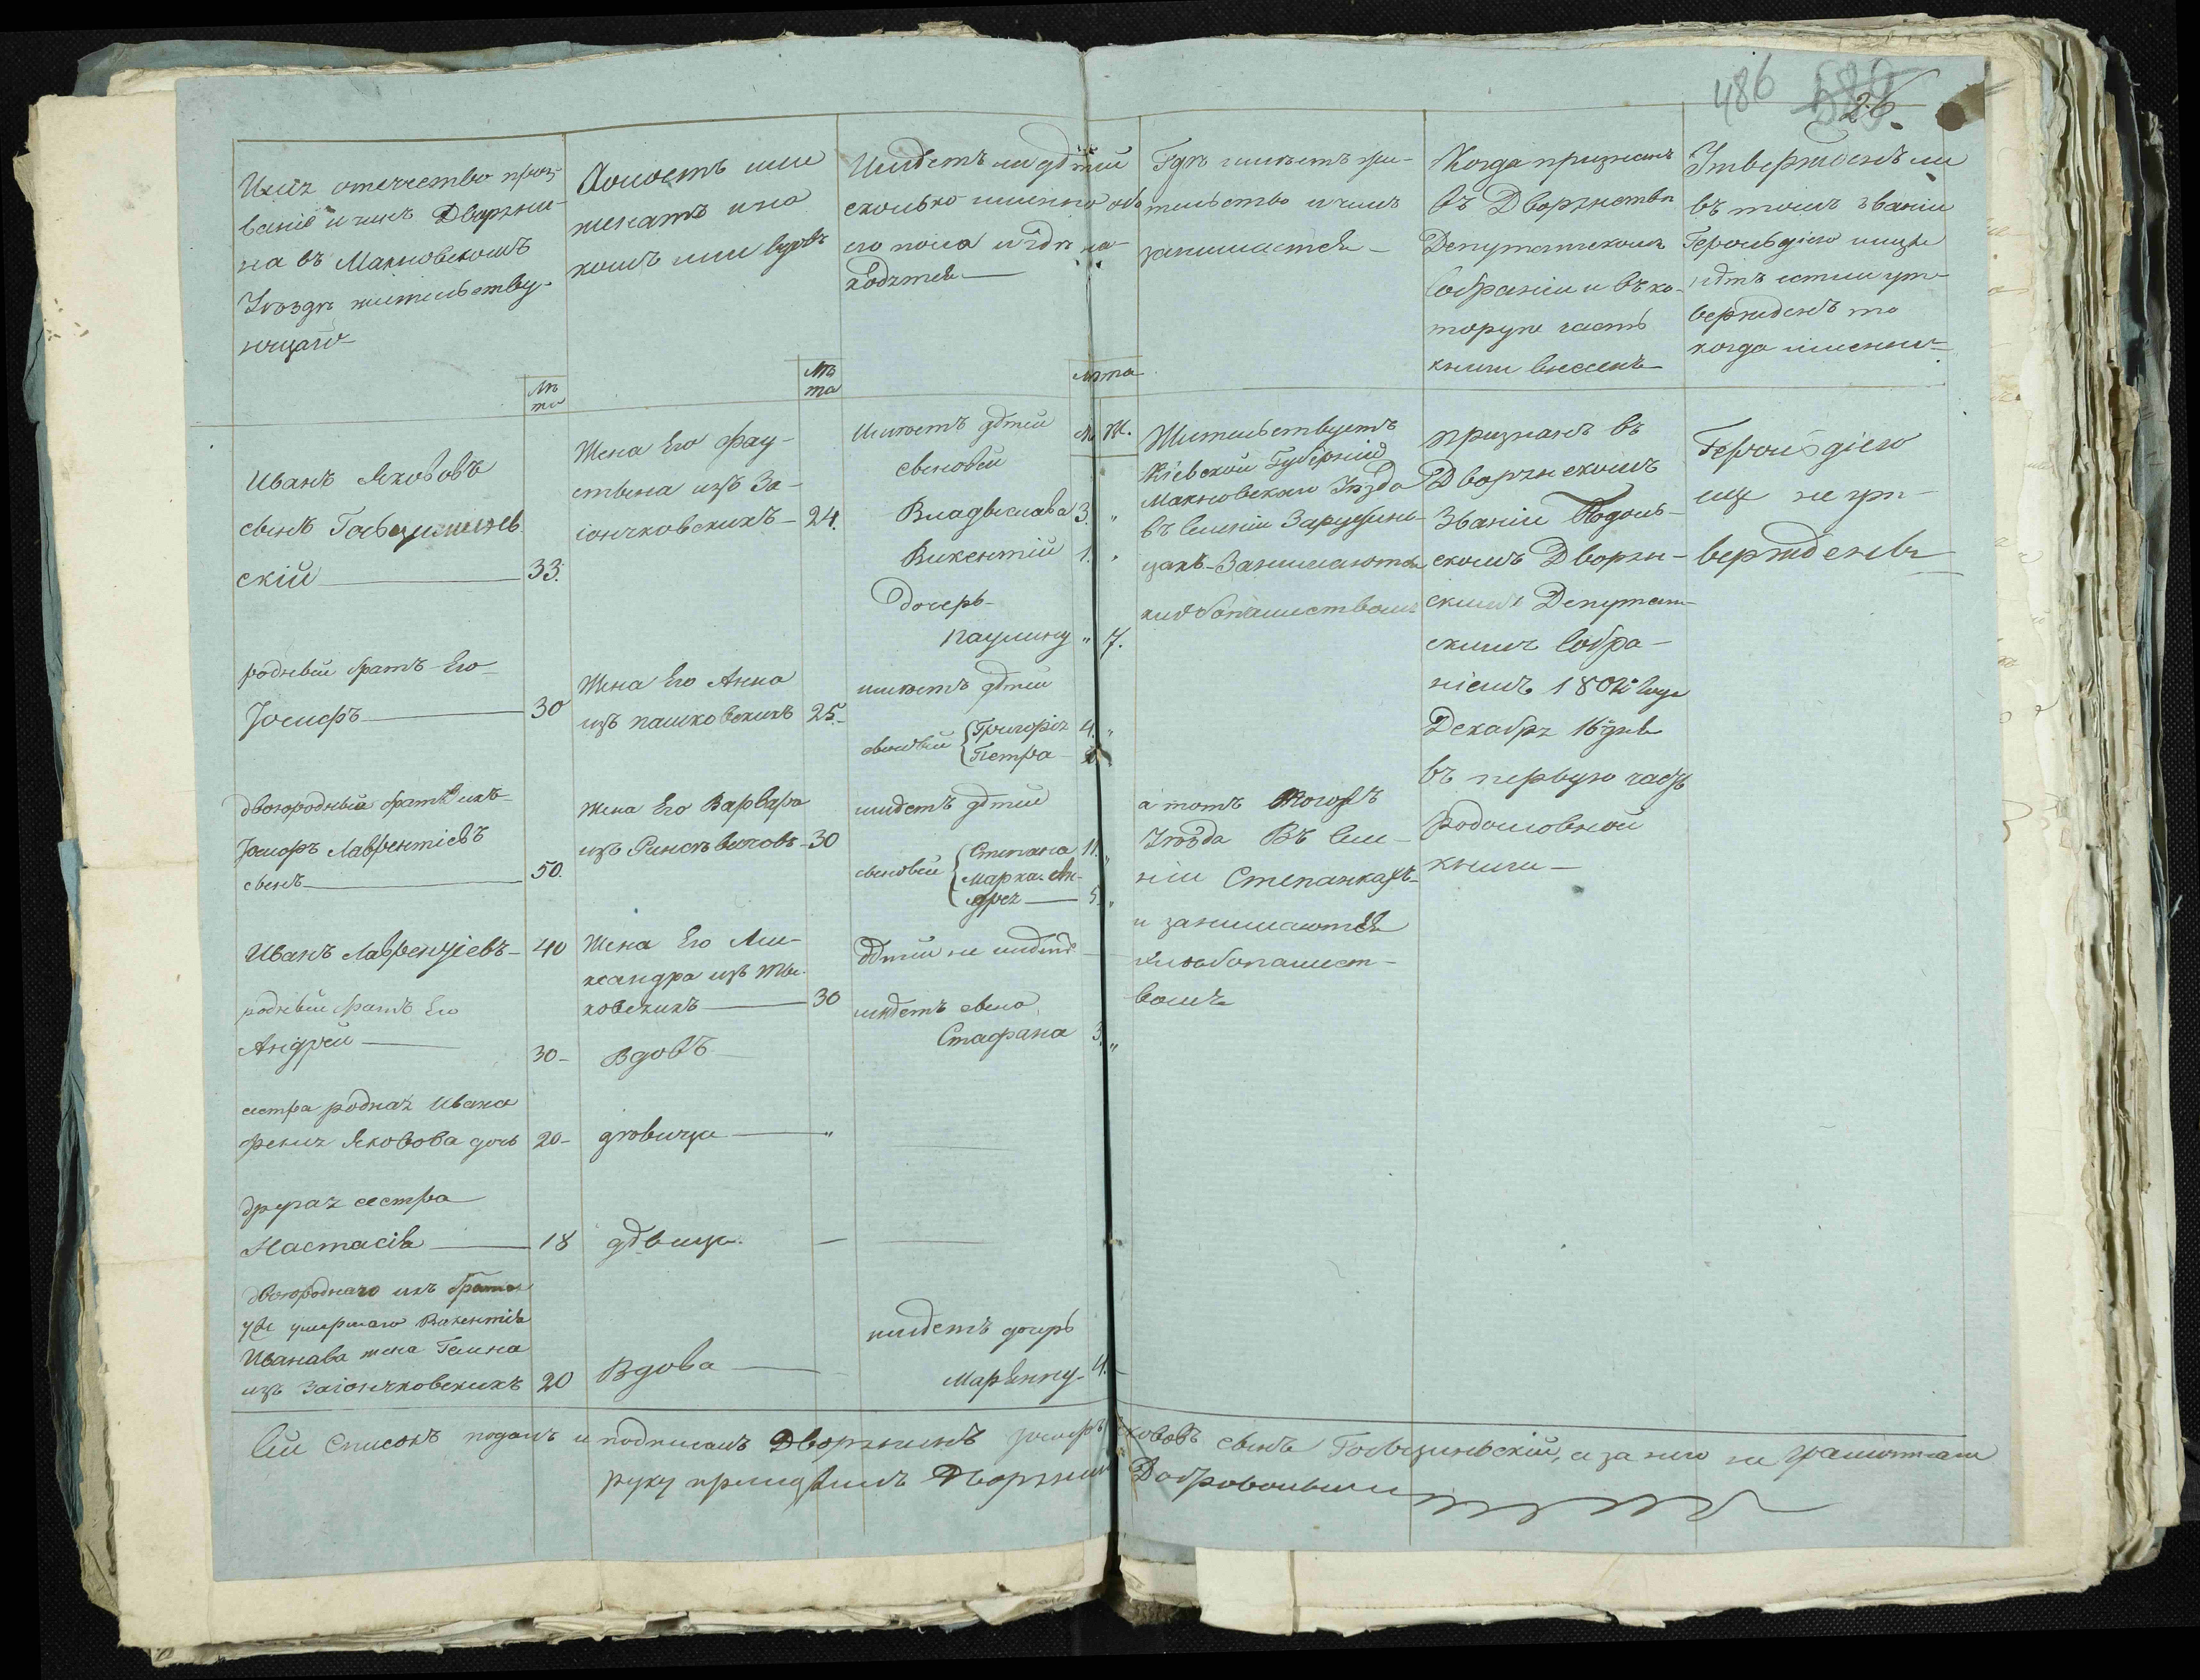 486
26.
Имя отечество проз-
ваніе и чинъ Дворяни-
на въ Махновскомъ
Уѣздѣ жительству-
ющаго
Лѣ
та
Холостъ или
женатъ и на
комъ или вдовъ
Лѣ
та
Имѣетъ ли дѣтей
сколько именно обо
его пола и гдѣ на-
ходятся
лѣта
Гдѣ имѣетъ жи-
тельство и чемъ
занимается
Когда признанъ
въ Дворянствѣ
Депутатскомъ
Собраніи и въ ко-
торую часть
книги внесенъ
Утвержденъ ли
въ томъ званіи
Герольдіею и еще
нѣтъ естли ут-
вержденъ то
когда именно
Иванъ Якововъ
сынъ
скій 33.
Жена Его Фау-
стына изъ За-
іончковскихъ 24.
Имѣетъ дѣтей М. Ж.
сыновей
Владыслава 3. "
Викентій 1. "
дочерь
Паулину " 7.
Жительствуетъ
Кіевской Губерніи
Махновскаго Уѣзда
въ Селеніи
цахъ Занимаются
хлѣбопашествомъ
признанъ въ
Дворянскомъ
Званіи Подоль-
скомъ Дворян-
скимъ Депутат-
скимъ Собра-
ніемъ 1802 Года
Декабря 16 дня
въ первую часть
родословной
книги
Герольдіею
еще не ут-
вержденъ
родный братъ Его
Іосифъ 30
Жена Его Анна
изъ Пашковскихъ 25.
имѣетъ дѣтей
сыновей Григорія 4. "
Петра
двоюродный братъ ихъ
Іосифъ Лаврентіевъ
сынъ 50.
Жена Его Варвара
изъ 30
имѣетъ дѣтей
сыновей Степана 11. "
Марка Ан-
дрея 5. "
а тотъ
Уѣзда Въ Селе-
ніи Степанкахъ
и занимаются
хлѣбопашест-
вомъ
Иванъ Лаврентіевъ 40
Жена Его Але-
ксандра изъ
ковскихъ 30
Дѣтей не имѣетъ
родный братъ Его
Андрей 30
Вдовъ
имѣетъ сына
Стафана 3. "
сестра родная Ивана
Яковова дочь 20
дѣвица "
другая сестра
Настасія 18
дѣвица
двоюроднаго ихъ брата
уже умершаго Викентія
Иванава жена
изъ Заіончковскихъ 20
Вдова
имѣетъ дочерь
Марьянну 4.
Сей Списокъ подалъ и подписалъ Дворянинъ Іосифъ Яковавъ сынъ Гольцинскій, а за него не грамотнаго
руку приложилъ Дворянинъ